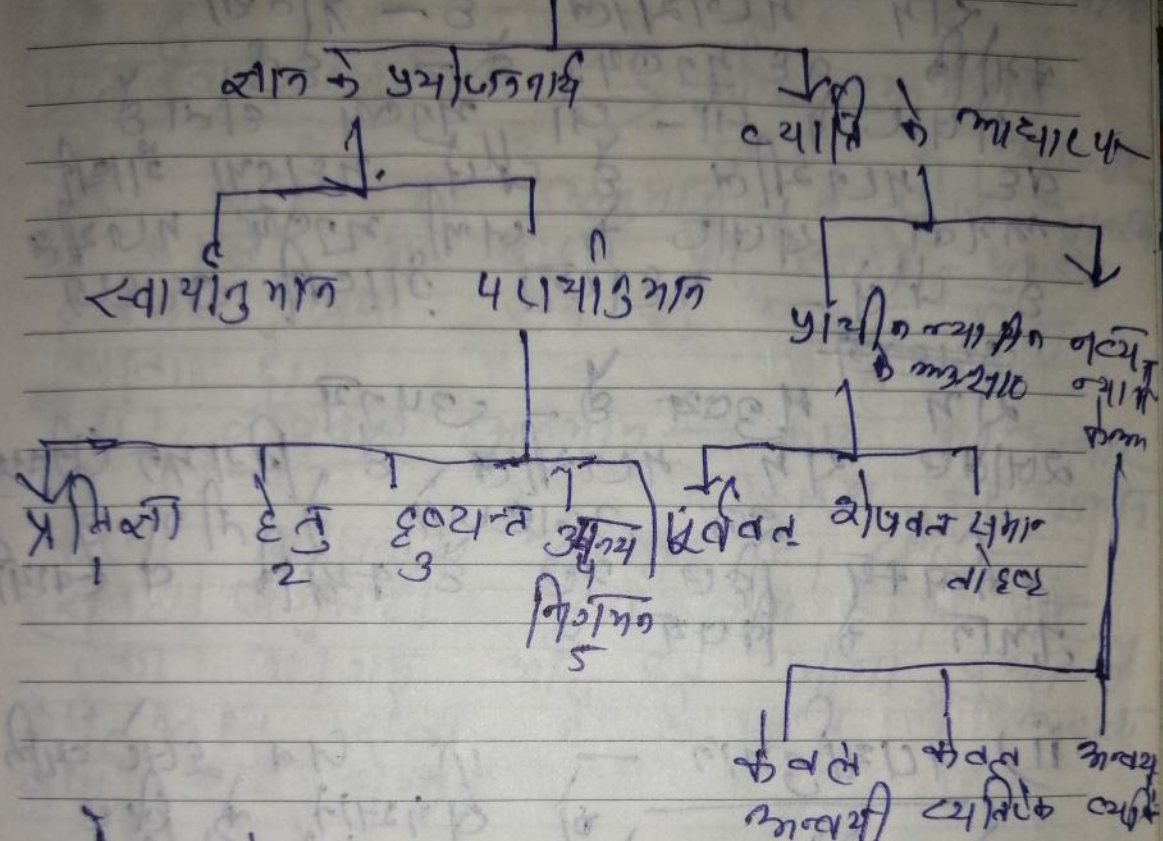 ज्ञान के प्रयोजनार्थ
व्याप्ति के आधार पर
स्वार्थानुमान
परार्थानुमान
प्राचीन न्याय
के अनुसार
नव्य
न्याय
प्रतिज्ञा
1
हेतु
2
दृष्टान्त
3
4
निगमन
5
पूर्ववत
शेषवत
सामान्
तोदृष्ट
केवल
अन्वयी
केवल
व्यतिरेक
अन्वय